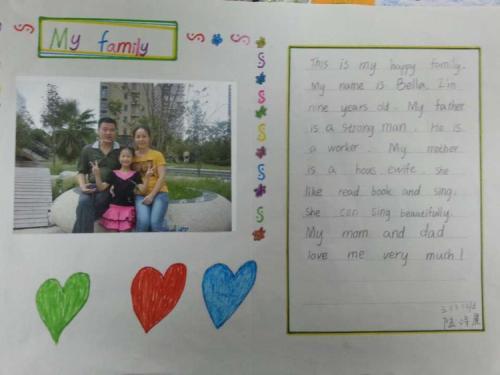 My family
This is my happy family.
My name is Bella. I'm
nine years old. My father
is a strong man. He is
a worker. My mother
is a hous ewife she
like read book and sing.
she can sing beautifully.
My mom and dad
love me very much!